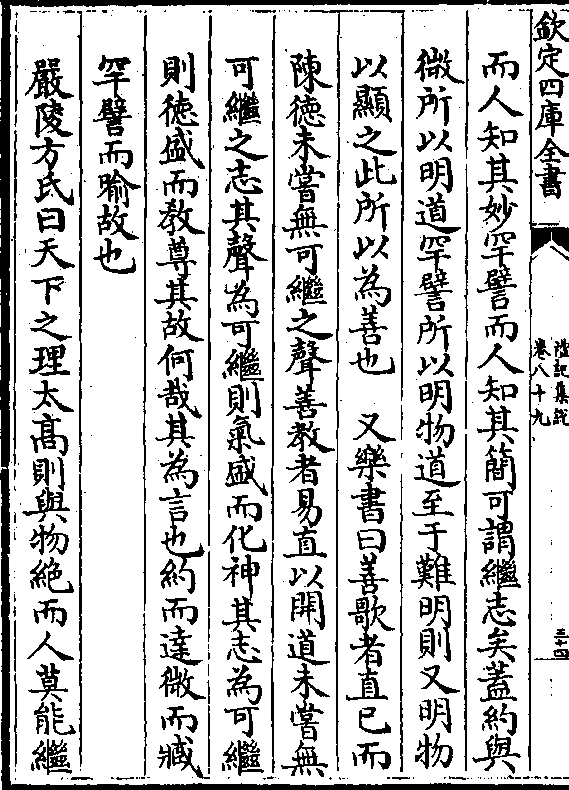 欽定四庫全書
禮記集説
卷八十九
三十四
而人知其妙罕譬而人知其簡可謂繼志矣蓋約與
微所以明道罕譬所以明物道至于難明則又明物
以顯之此所以為善也　又樂書曰善歌者直已而
陳徳未嘗無可繼之聲善教者易直以開道未嘗無
可繼之志其聲為可繼則氣盛而化神其志為可繼
則徳盛而教尊其故何哉其為言也約而達微而臧
罕譬而喻故也
嚴陵方氏曰天下之理太髙則與物絶而人莫能繼